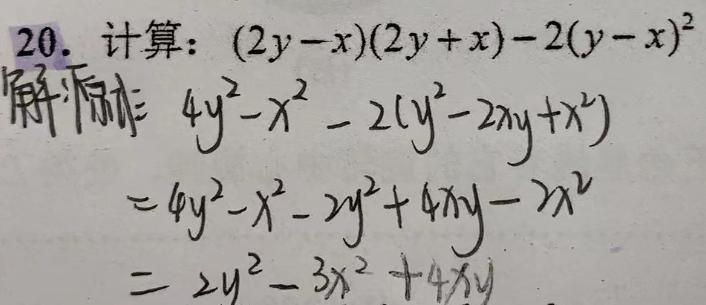 20. 计算：(2y-x)(2y+x)-2(y-x)²
解：原式= 4y²-x²-2(y²-2xy+x²)
=4y²-x²-2y²+4xy-2x²
=2y²-3x²+4xy